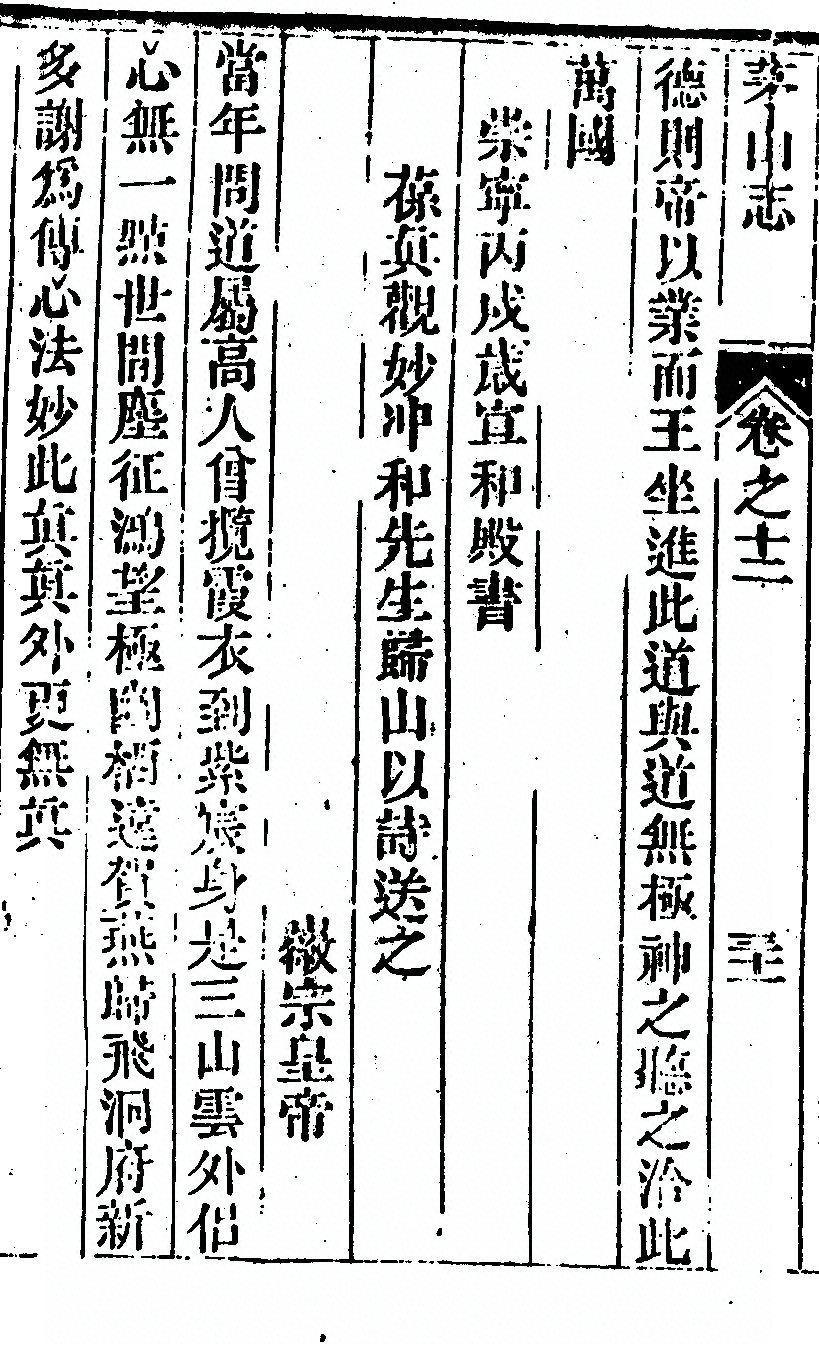 茅山志 卷之十二 三十一
德則帝以業而王坐進此道與道無極神之臨之洽此
萬國
崇寧丙戌歲宣和殿書
葆真觀妙冲和先生歸山以詩送之
徽宗皇帝
當年問道屬高人曾攬霞衣到紫宸身是三山雲外侶
心無一點世間塵征鴻望極幽栖遠賀燕歸飛洞府新
多謝爲傳心法妙此真真外更無真